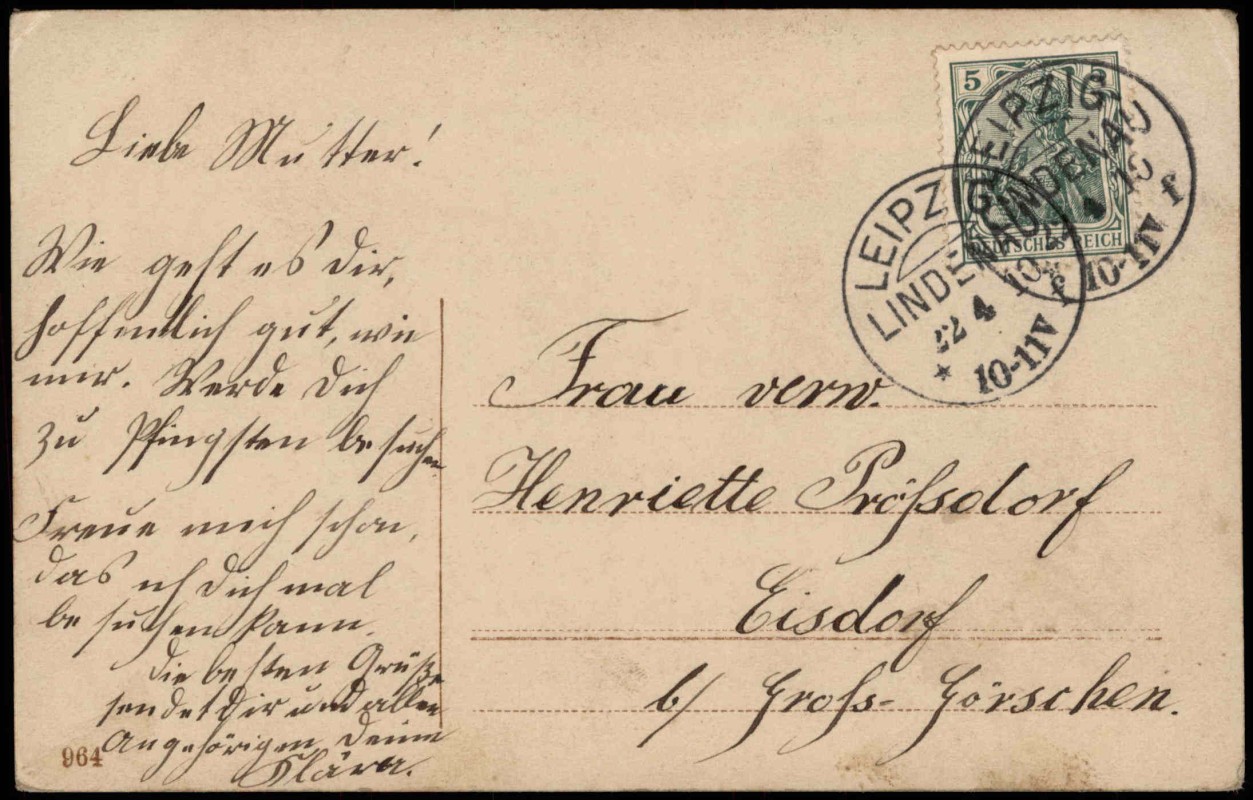 Liebe Mutter!
Wie geht es Dir,
hoffentlich gut, wie
mir. Werde Dich
zu Pfingsten besuchen.
Freue mich schon,
das ich Dich mal
besuchen kann.
Die besten Grüße
sendet Dir und allen
Angehörigen Deine
Klära.
964
5 5
DEUTSCHES REICH
LEIPZIG
LINDENAU
22 4 10
10-11V f
LEIPZIG
LINDENAU
22 4 10
* 10-11V f
Frau verw.
Henriette Prößdorf
Eisdorf
b/ Groß-Görschen.